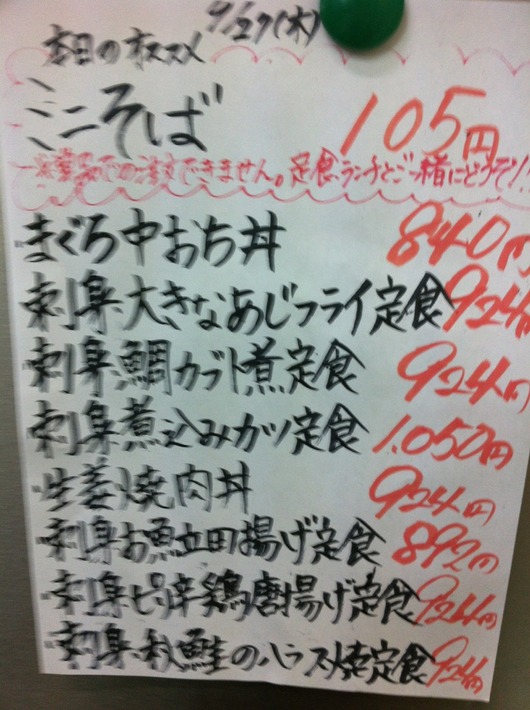 9/27(木)
本日のオススメ
ミニそば 105円
単品での注文できません。定食、ランチとご一緒にどうぞ!!
まぐろ中おち丼 840円
刺身、大きなあじフライ定食 924円
刺身、鯛カブト煮定食 924円
刺身、煮込みカツ定食 1,050円
生姜焼肉丼 924円
刺身、お魚立田揚げ定食 892円
刺身、ピリ辛鶏唐揚げ定食 924円
刺身、秋鮭のハラス焼定食 924円